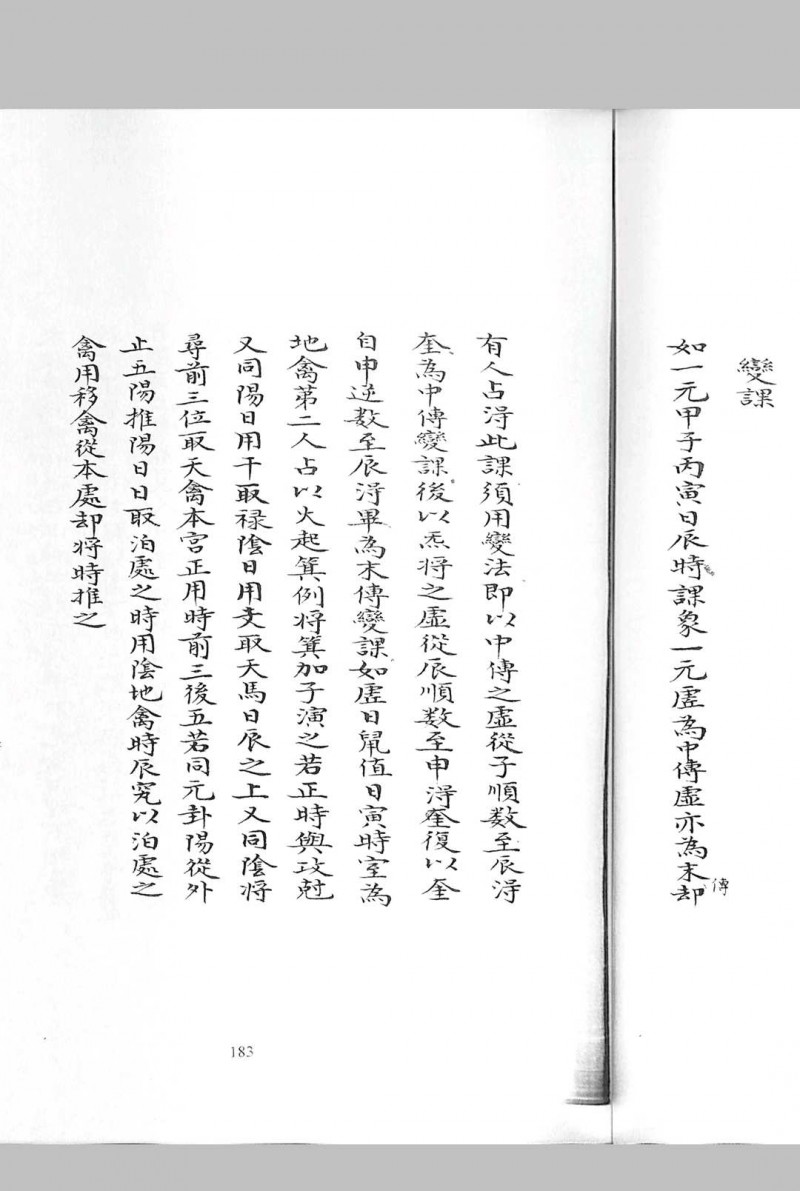 變課
如一元甲子丙寅日辰時課象一元虛為中傳虛亦為末傳却
有人占淂此課須用變法即以中傳之虛從子順数至辰淂
奎為中傳變課後以炁将之虛從辰順数至申淂奎復以奎
自申逆数至辰淂畢為末傳變課如虛日鼠值日寅時室為
地禽第二人占以火起箕例将箕加子演之若正時與政尅
又同陽日用干取禄陰日用支取天馬日辰之上又同陰将
尋前三位取天禽本宮正用時前三後五若同元卦陽從外
止五陽推陽日日取泊處之時用陰地禽時辰究以泊處之
禽用移禽從本處却将時推之
183